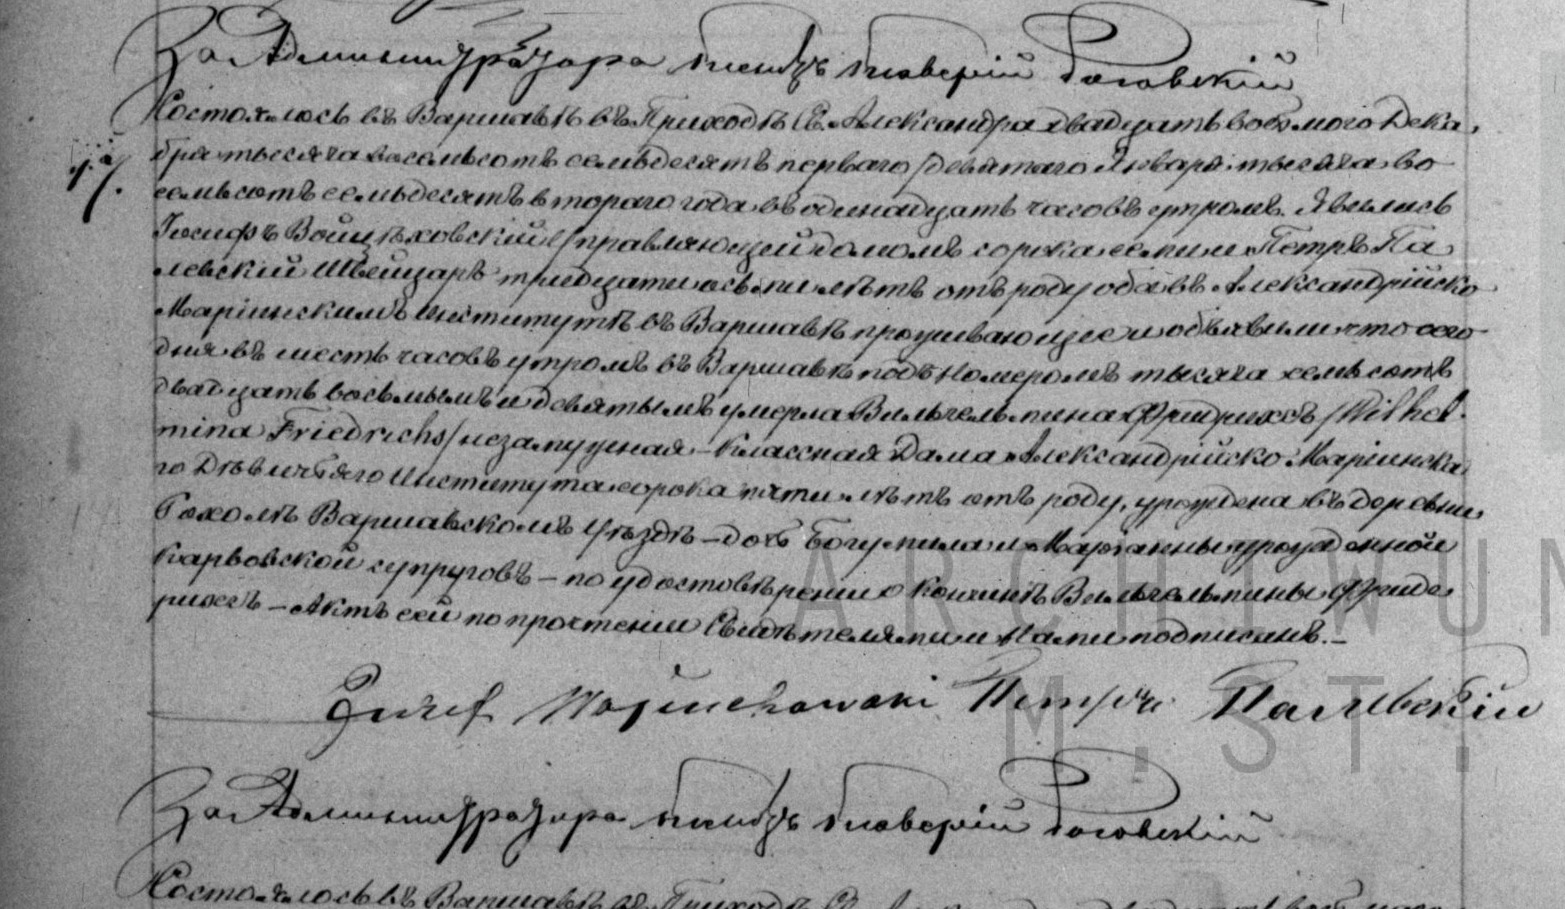 За Администратора Ксендзъ Ксаверій Роговскій
Состоялось въ Варшавѣ въ Приходѣ Св. Александра двадцать восьмого Дека
17.
бря тысяча восемьсотъ семьдесятъ перваго /девятаго Января тысяча во
семьсотъ семьдесятъ втораго года въ одинадцать часовъ утромъ. Явились
Іосифъ Войцѣховскій Управляющій домомъ сорока семи и Петръ Па
левскій Швейцаръ тридцати осьми лѣтъ отъ роду оба въ Александрійско
Маріинскимъ Институтѣ въ Варшавѣ проживающіе и объявили что сего
дня въ шесть часовъ утромъ въ Варшавѣ подъ Номеромъ тысяча семьсотъ
двадцать восьмымъ и девятымъ умерла Вильгельмина Фридрихсъ /Wilhel-
mina Friedrichs/ незамужная – Классная Дама Александрійско Маріинска
го Дѣвичьяго Института сорока пяти лѣтъ отъ роду, урождена въ деревни
Варшавскомъ Уѣздѣ – дочь Богумила и Маріанны урожденной
Карвовской супруговъ – по удостовѣреніи о Кончинѣ Вильгельмины Фриде
рихсъ – Актъ сей по прочтеніи Свидѣтелями и Нами подписанъ. –
Józef Wojciechowski Петръ Палевскій
За Администратора Ксендзъ Ксаверій Роговскій
Состоялось въ Варшавѣ въ Приходѣ Св.
ARCHIWUM
M.ST.